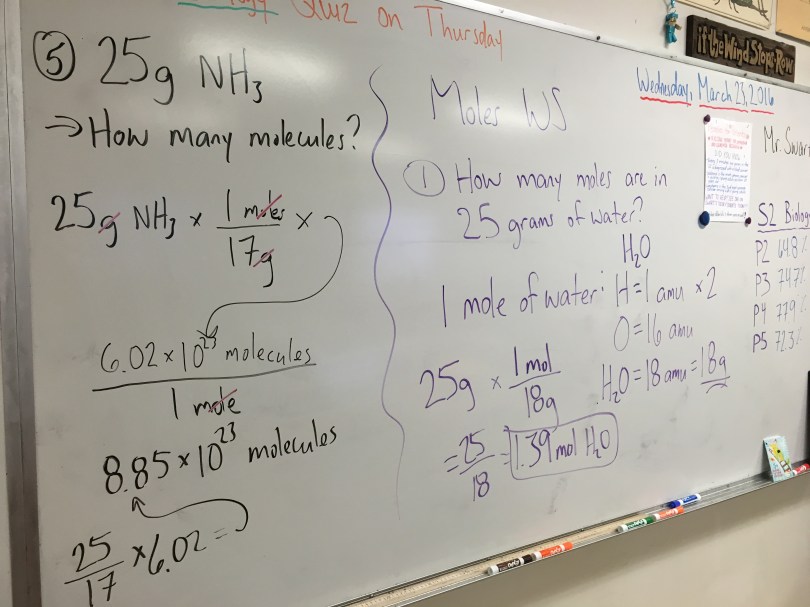 Quiz on Thursday
⑤ 25g NH₃
→ How many molecules?
25g NH₃ × 1 moles / 17g ×
6.02 × 10²³ molecules
1 mole
8.85 × 10²³ molecules
25/17 × 6.02 =
Moles WS
① How many moles are in
25 grams of water?
H₂O
1 mole of water: H = 1 amu × 2
O = 16 amu
H₂O = 18 amu = 18g
25g × 1 mol / 18g
= 25/18 = 1.39 mol H₂O
if the Wind Stops Row
Wednesday, March 23, 2016
Mr. Swart
S2 Biology
P2 64.8%
P3 74.7%
P4 77.9%
P5 72.3%